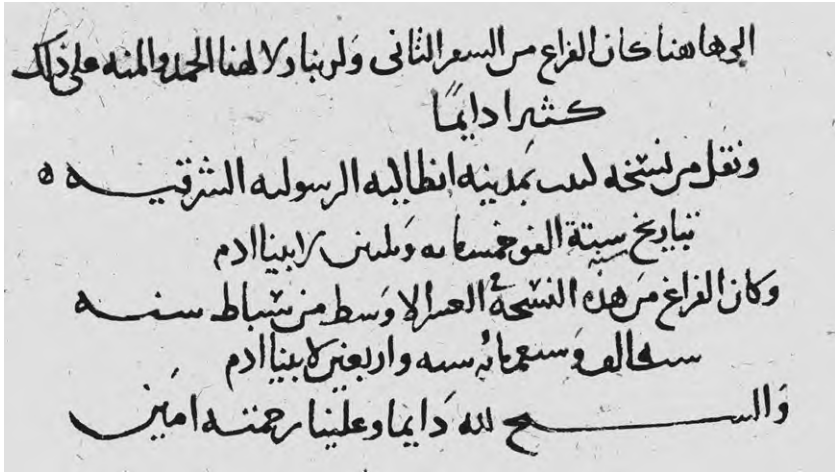 الى هاهنا كان الفراغ من السفر الثانى ولربنا ولالهنا الحمد والمنه على ذلك
كثيرا دايمًا
ونقل من نسخه كتبت بمدينه انطاكيه الرسوليه الشرقيـــه ه
بتاريخ ستة الف وخمسمايه وثلثين لابينا ادم
وكان الفراغ من هذه النسخة فى العشر الاوسط من شباط سنـــه
ستة الف وسبعمائه سته واربعين لابينا ادم
والســـبح لله دايما وعلينا رحمته امين